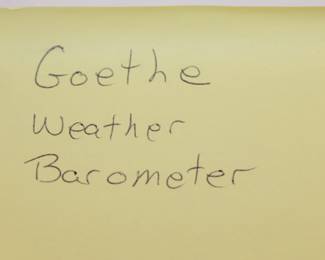 Goethe
Weather
Barometer